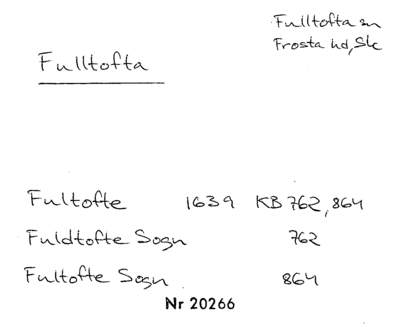 Fulltofta sn
Frosta hd, Sk
Fulltofta
Fultofte 1639 KB 762, 864
Fuldtofte Sogn 762
Fultofte Sogn 864
Nr 20266